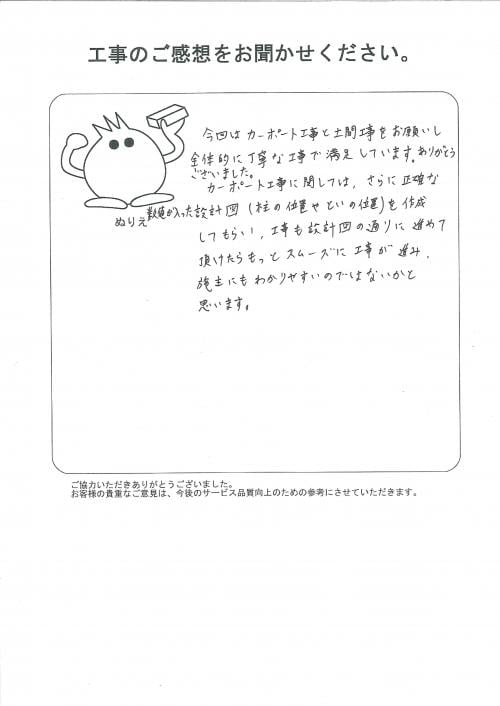 工事のご感想をお聞かせください。
今回はカーポート工事と土間工事をお願いし
全体的に丁寧な工事で満足しています。ありがとう
ございました。
カーポート工事に関しては、さらに正確な
ぬりえ
数値が入った設計図(柱の位置やといの位置)を作成
してもらい、工事も設計図の通りに進めて
頂けたらもっとスムーズに工事が進み、
施主にもわかりやすいのではないかと
思います。
ご協力いただきありがとうございました。
お客様の貴重なご意見は、今後のサービス品質向上のための参考にさせていただきます。